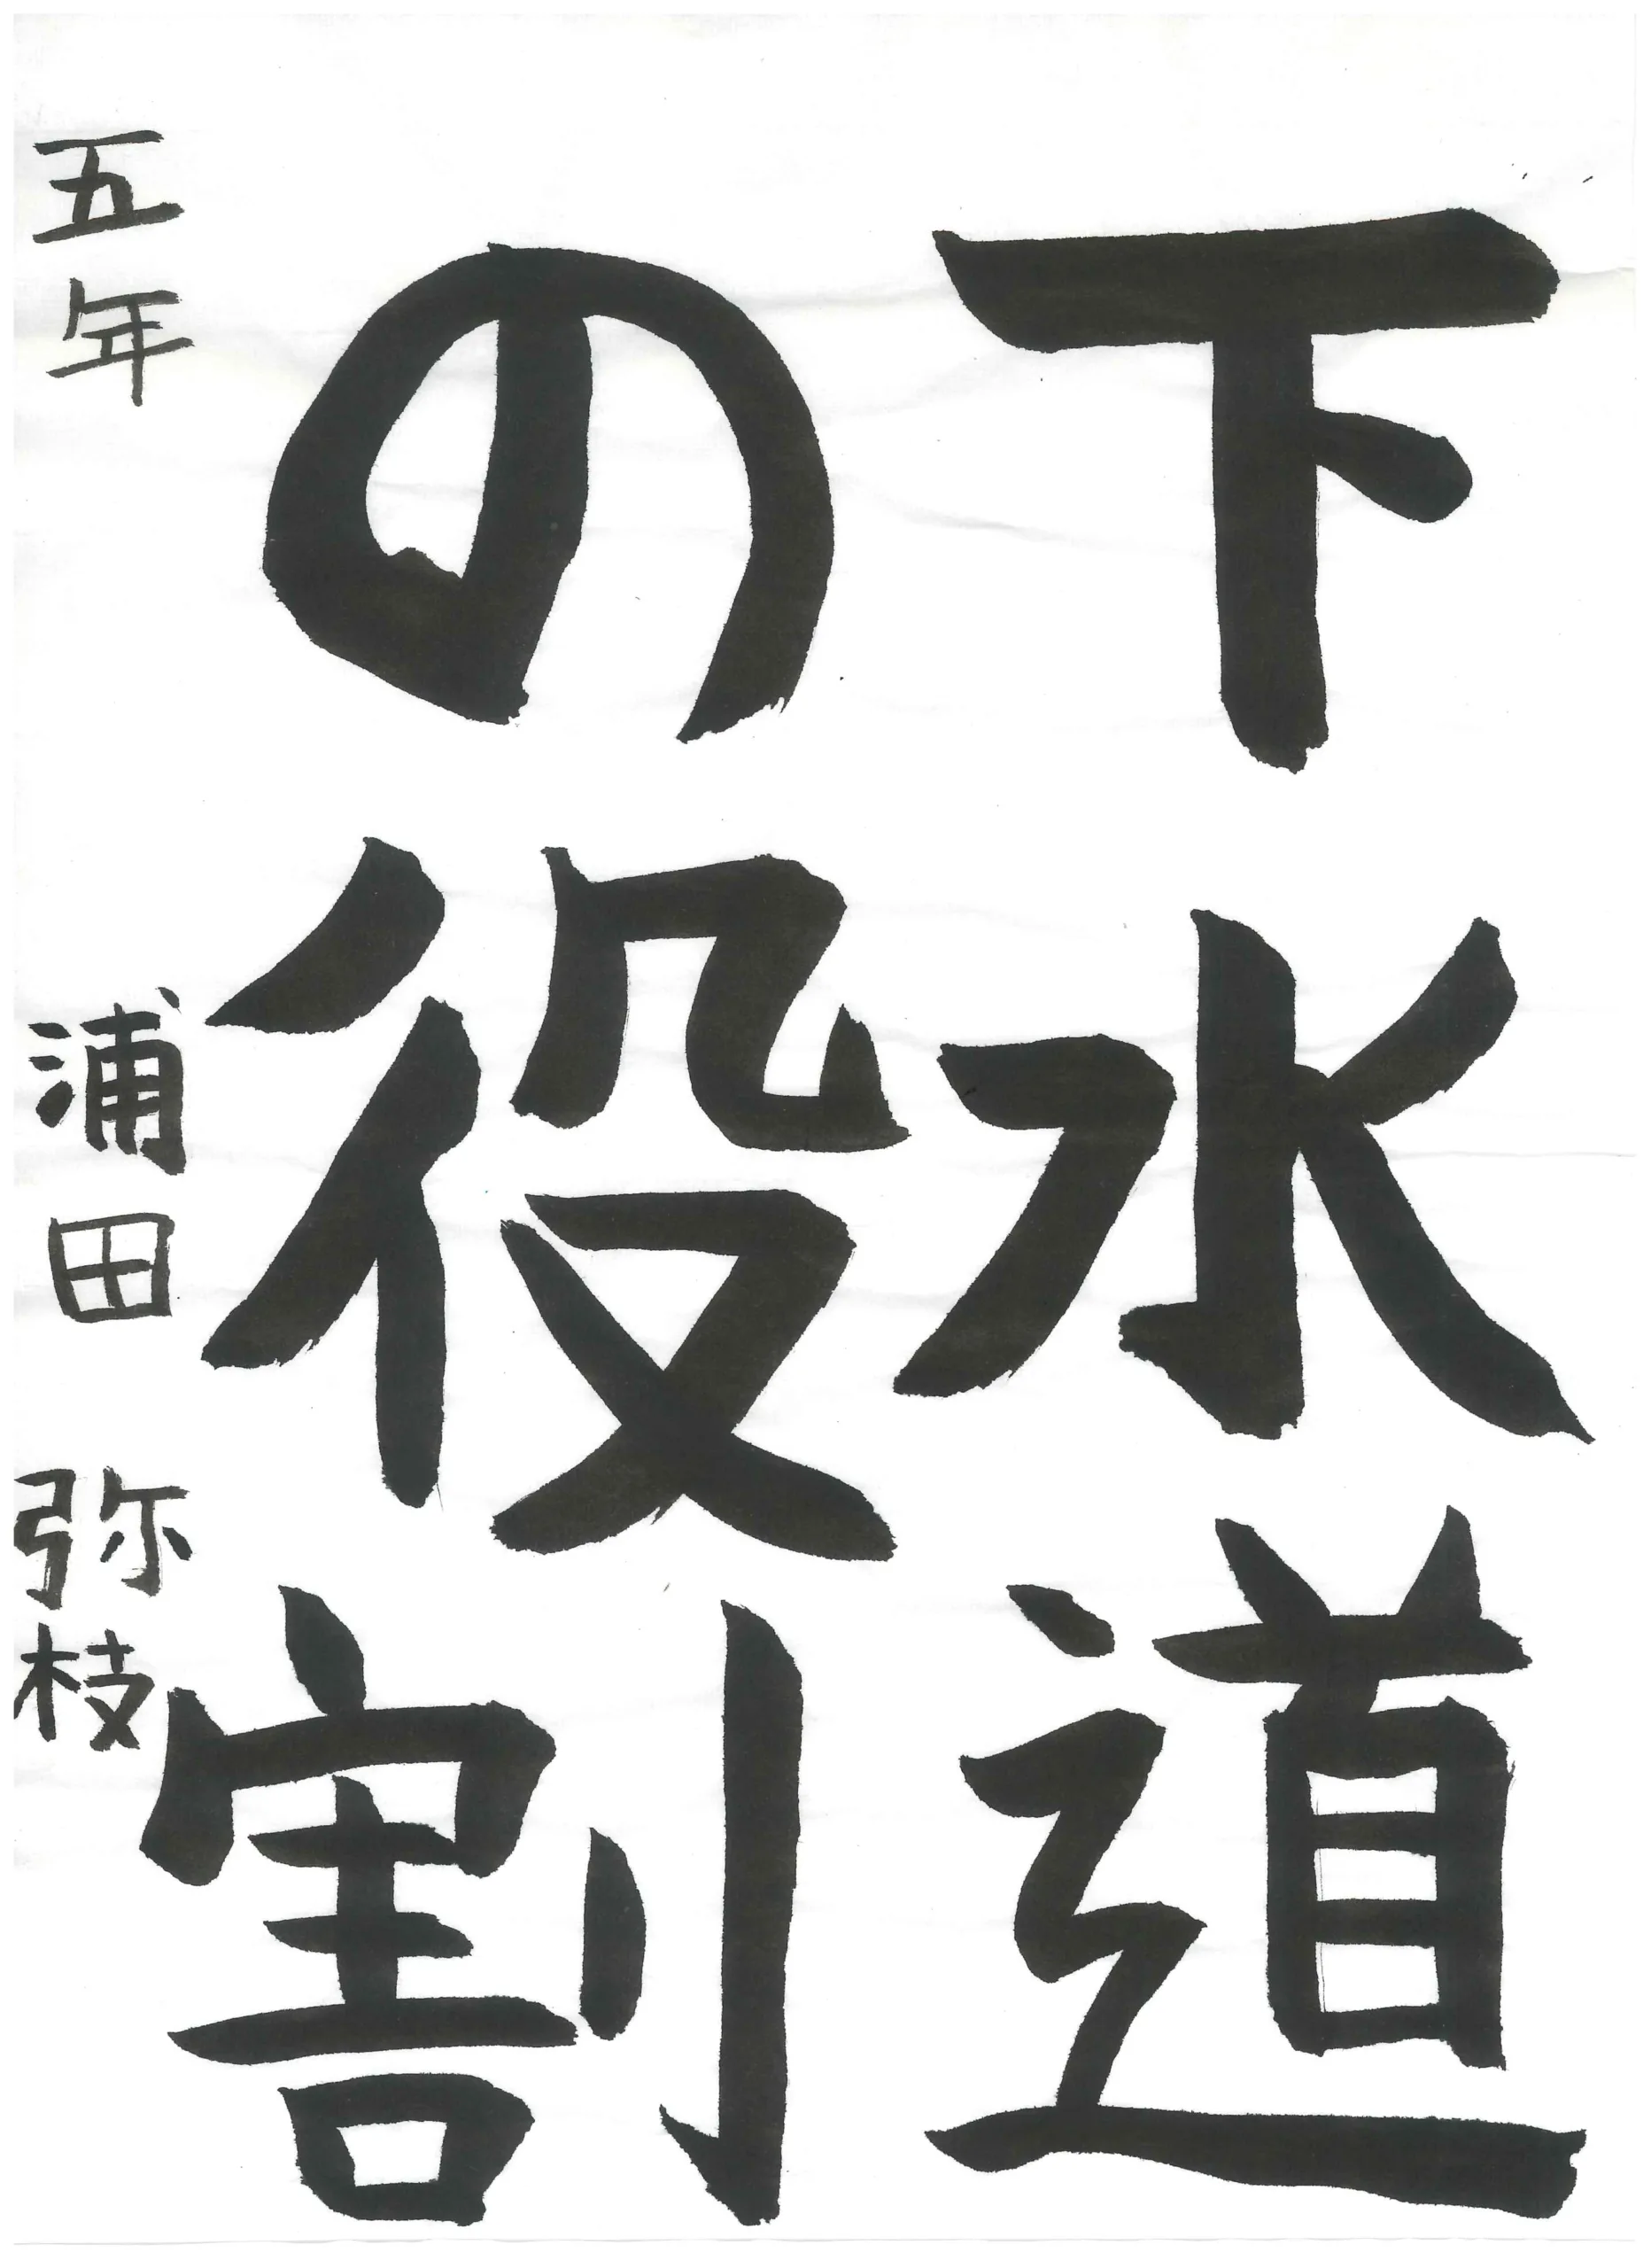 下水道
の役割
五年 浦田 弥枝